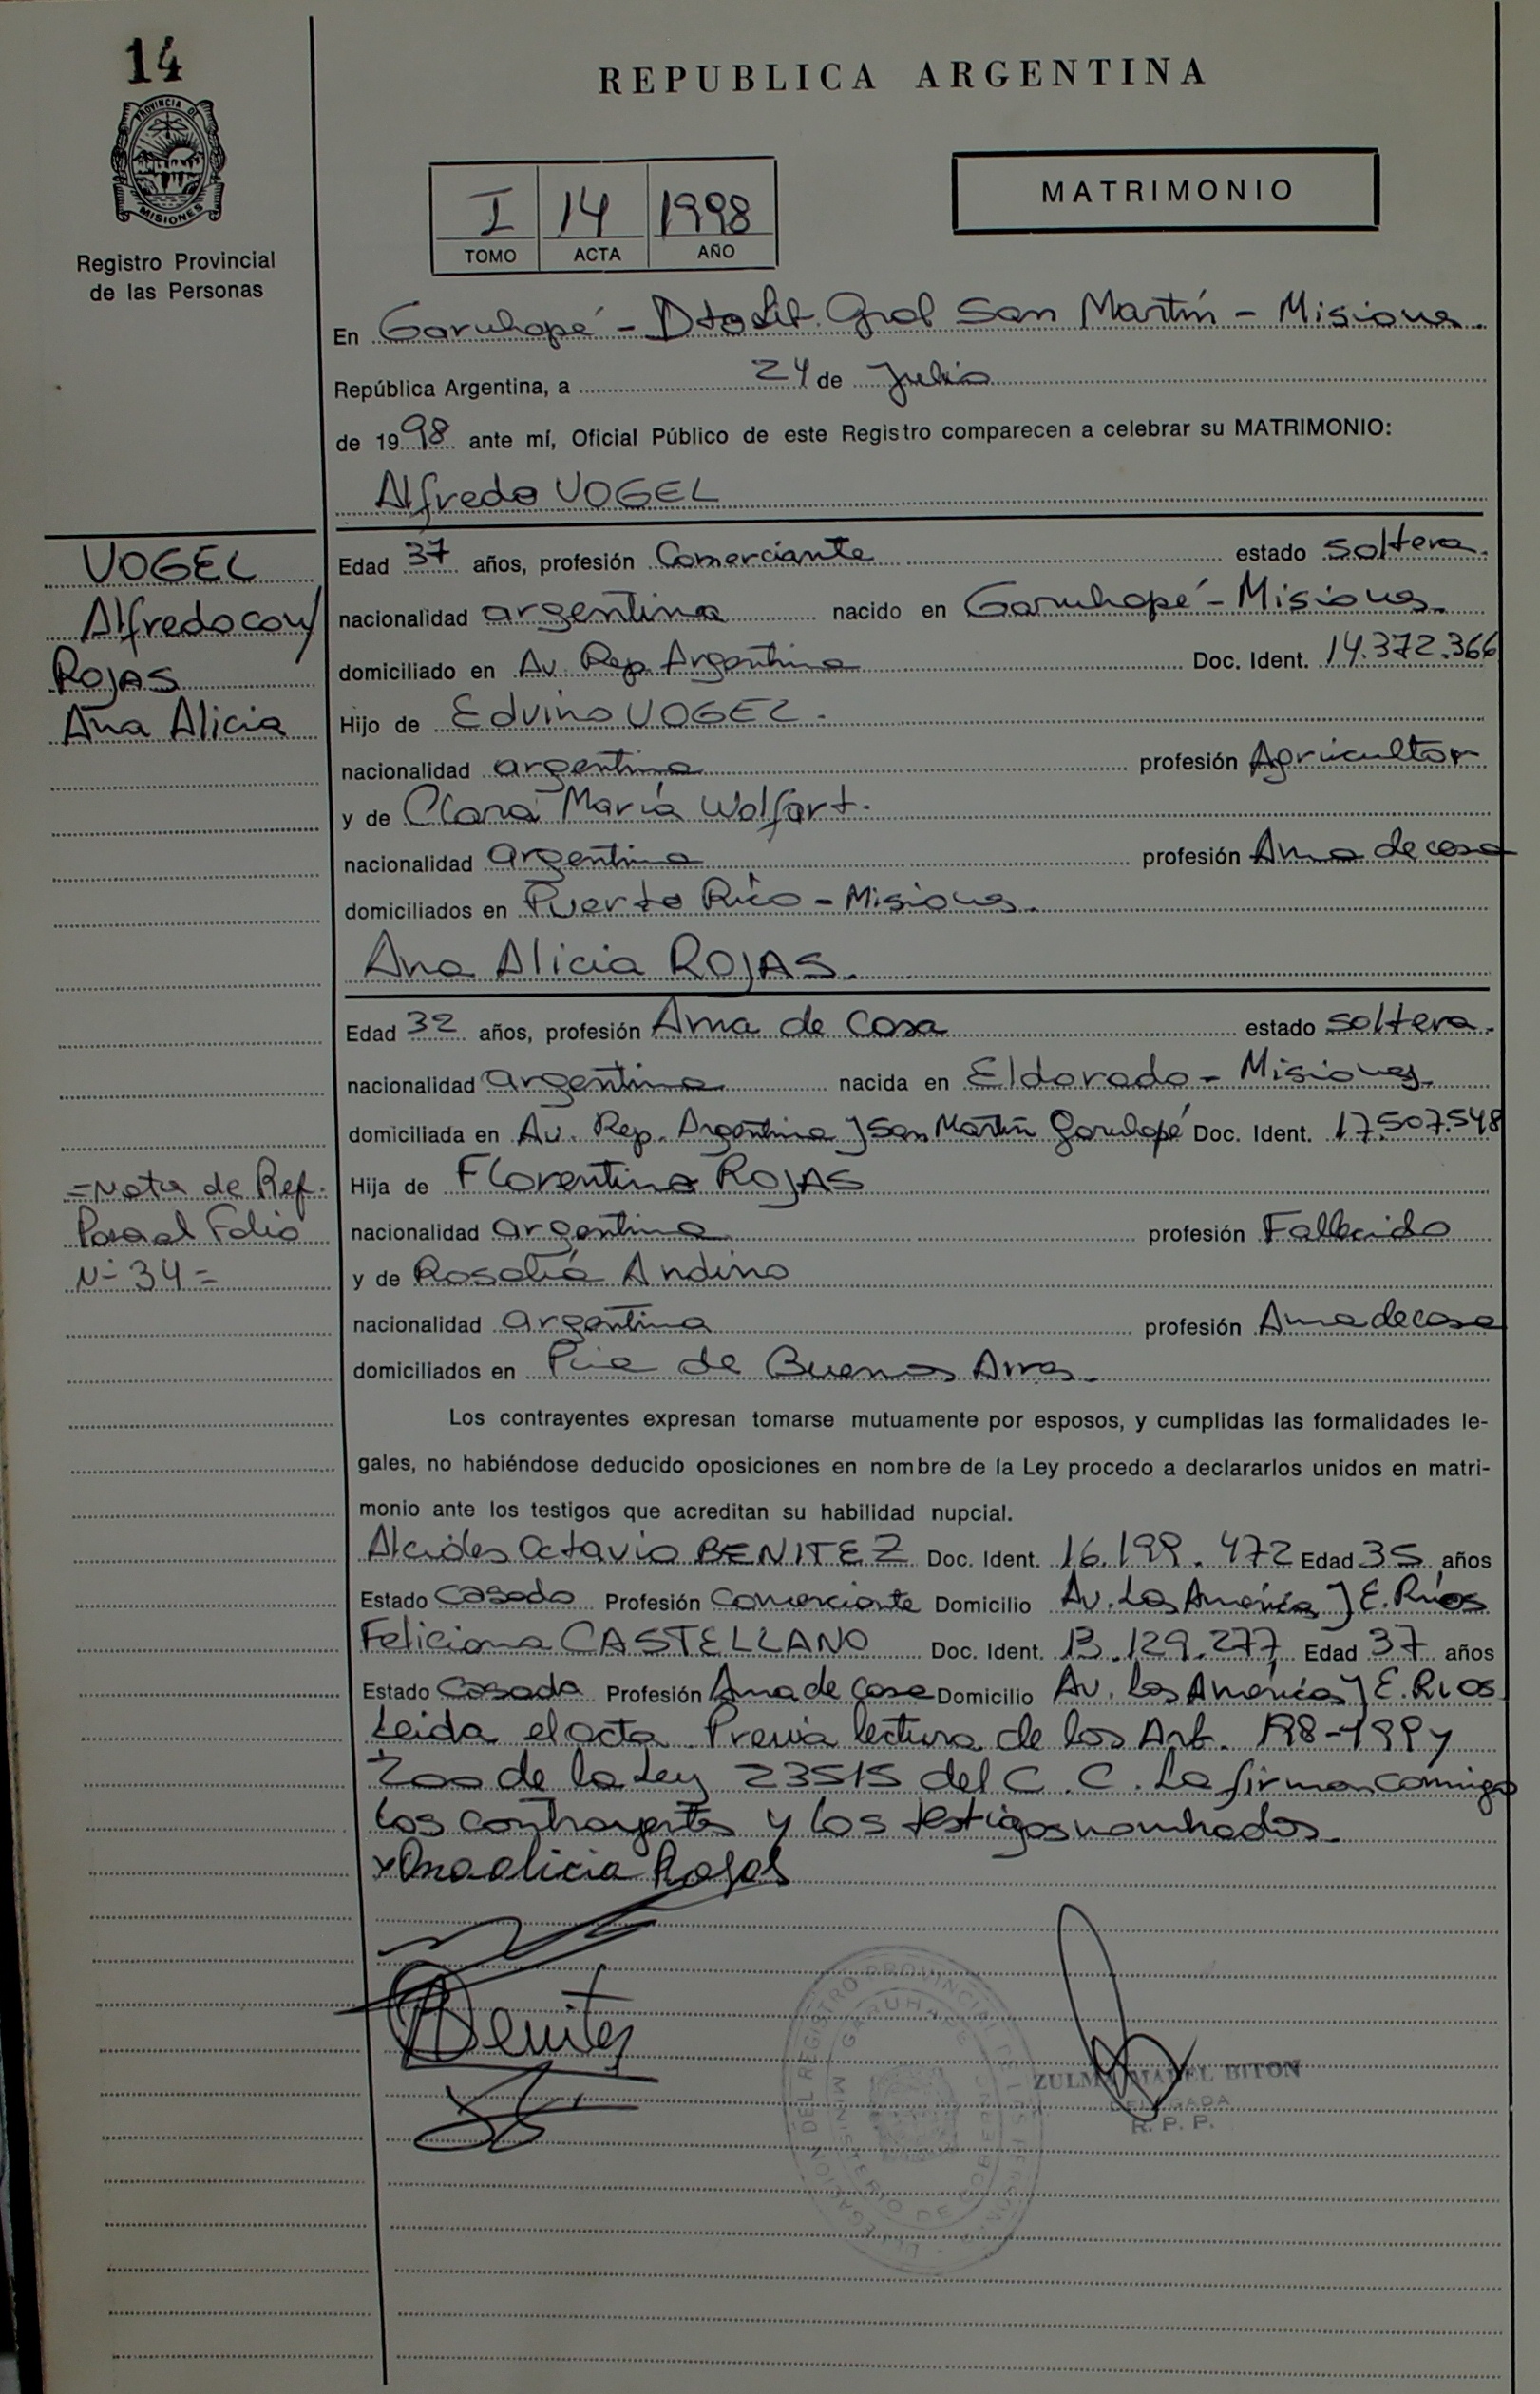 14
REPUBLICA ARGENTINA
PROVINCIA DE
MISIONES
Registro Provincial
de las Personas
I 14 1998
TOMO ACTA AÑO
MATRIMONIO
En Garuhapé - Dto Lib. Gral San Martín - Misiones.
República Argentina, a 24 de Julio
de 1998 ante mí, Oficial Público de este Registro comparecen a celebrar su MATRIMONIO:
Alfredo VOGEL
VOGEL
Alfredo con/
ROJAS
Ana Alicia
Edad 37 años, profesión Comerciante estado soltero.
nacionalidad argentina nacido en Garuhapé - Misiones.
domiciliado en Av. Rep. Argentina Doc. Ident. 14.372.366
Hijo de Edvino VOGEL.
nacionalidad argentina profesión Agricultor
y de Clara María Wolfart.
nacionalidad argentina profesión Ama de casa
domiciliados en Puerto Rico - Misiones.
Ana Alicia ROJAS.
Edad 32 años, profesión Ama de Casa estado soltera.
nacionalidad argentina nacida en Eldorado - Misiones.
domiciliada en Av. Rep. Argentina y San Martín Garuhapé Doc. Ident. 17.507.548
Hija de Florentino ROJAS
nacionalidad argentina profesión Fallecido
y de Rosalía Andino
nacionalidad argentina profesión Ama de casa
domiciliados en Pcia de Buenos Aires.
=Nota de Ref.
Pasa al Folio
Nº 34=
Los contrayentes expresan tomarse mutuamente por esposos, y cumplidas las formalidades le-
gales, no habiéndose deducido oposiciones en nombre de la Ley procedo a declararlos unidos en matri-
monio ante los testigos que acreditan su habilidad nupcial.
Alcides Octavio BENITEZ Doc. Ident. 16.199.472 Edad 35 años
Estado Casado Profesión Comerciante Domicilio Av. Las Américas y E. Ríos
Feliciana CASTELLANO Doc. Ident. 13.129.277 Edad 37 años
Estado Casada Profesión Ama de Casa Domicilio Av. Las Américas y E. Rios
Leida el acta. Previa lectura de los Art. 198-199 y
200 de la Ley 23515 del C. C. La firman conmigo
los contrayentes y los testigos nombrados.
x Ana alicia Rojas
Benitez
DELEGACION DEL REGISTRO PROVINCIAL DE LAS PERSONAS
GARUHAPE
MINISTERIO DE GOBIERNO
ZULMA MABEL BITON
DELEGADA
R. P. P.